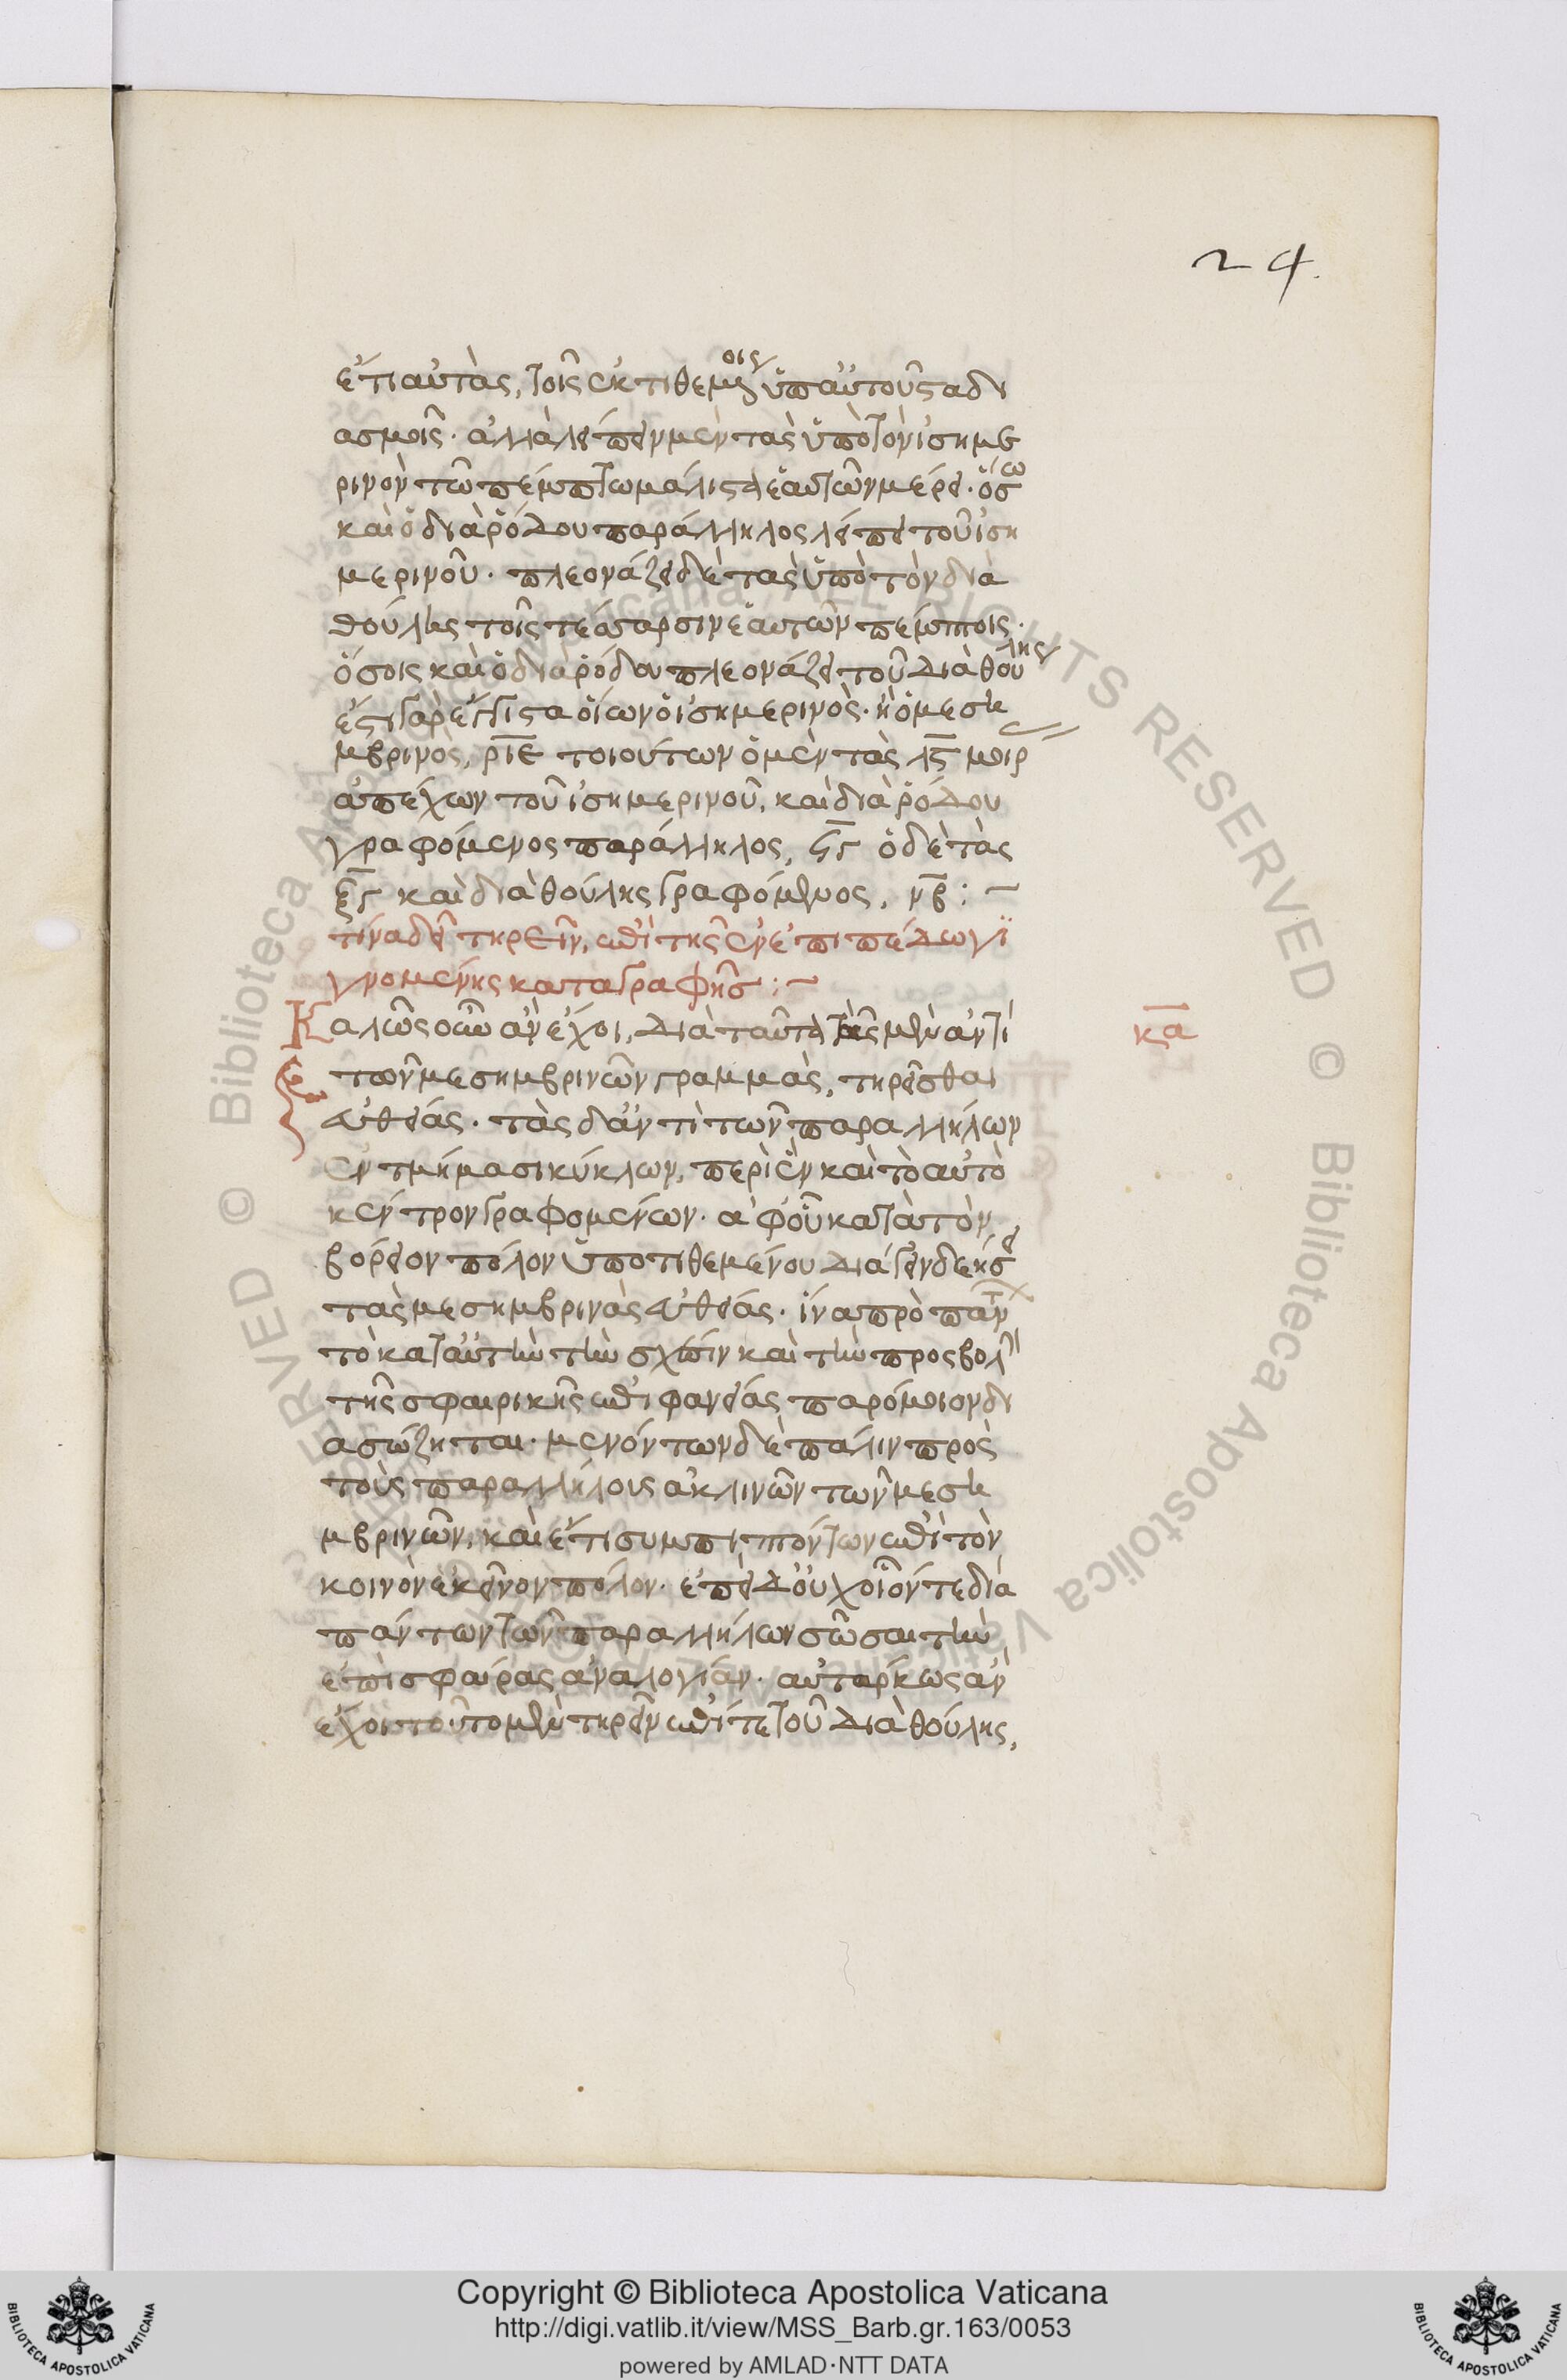 24.
ἔτι αὐτὰς, τοῖς ἐκτιθεμένοις ὑπ αὐτοῦ στ αδι
ασμοῖς. ἀλλὰ λείπειν μὲν τὰς ὑπὸ τὸν ἰσημε
ρινὸν τῶ πέμπτω μάλιστα ἑαυτῶν μέρει. ὅσω
καὶ ὁ διὰ ῥόδου παράλληλος λείπει τοῦ ἰση
μερινοῦ. πλεονάζει δὲ τὰς ὑπὸ τὸν διὰ
θούλης τοῖς τέσσαρσιν ἑαυτῶν πέμπτοις.
ὅσοις καὶ ὁ διὰ ῥόδου πλεονάζει τοῦ διὰ θούλης
ἔστι γὰρ ἔγγιστα οἵων ὁ ἰσημερινὸς. ἢ ὁ μεση
μβρινὸς, ριε τοιούτων ὁ μὲν τὰς λς μοιρ
ἀπέχων τοῦ ἰσημερινοῦ, καὶ διὰ ῥόδου
γραφόμενος παράλληλος, ϟγ ὁ δὲ τὰς
ξγ καὶ διὰ θούλης γραφόμενος, νβ :~
τίνα δεῖ τηρεῖν, ἐπὶ τῆς ἐν ἐπιπέδω γι
γνομένης καταγραφῆς :~
Καλῶς οὖν ἂν ἔχοι, διὰ ταῦτα τὰς μὲν ἀντὶ
κα
τῶν μεσημβρινῶν γραμμὰς, τηρεῖσθαι
εὐθείας. τὰς δ ἀντὶ τῶν παραλλήλων
ἐν τμήμασι κύκλων, περὶ ἓν καὶ τὸ αὐτὸ
κέντρον γραφομένων. ἀφ οὗ κατὰ τὸν
βόρειον πόλον ὑποτιθεμένου διάγειν δεήσει
τὰς μεσημβρινὰς εὐθείας. ἵνα πρὸ πάντ
τὸ κατ αὐτὴν τὴν σχέσιν καὶ τὴν προσβολὴ
τῆς σφαιρικῆς ἐπιφανείας παρόμοιον δι
ασώζηται. μενόντων δὲ πάλιν πρὸς
τοὺς παραλλήλους ἀκλινῶν τῶν μεση
μβρινῶν, καὶ ἔτι συμπιπτόντων ἐπὶ τὸν
κοινὸν ἐκεῖνον πόλον. ἐπεὶ δ οὐχ οἷόν τε διὰ
πάντων τῶν παραλλήλων σῶσαι τὴν
ἐπὶ σφαίρας ἀναλογίαν. αὐτάρκως ἂν
ἔχοι τοῦτο μὲν τηρεῖν ἐπί τε τοῦ διὰ θούλης,
Copyright © Biblioteca Apostolica Vaticana
http://digi.vatlib.it/view/MSS_Barb.gr.163/0053
powered by AMLAD·NTT DATA